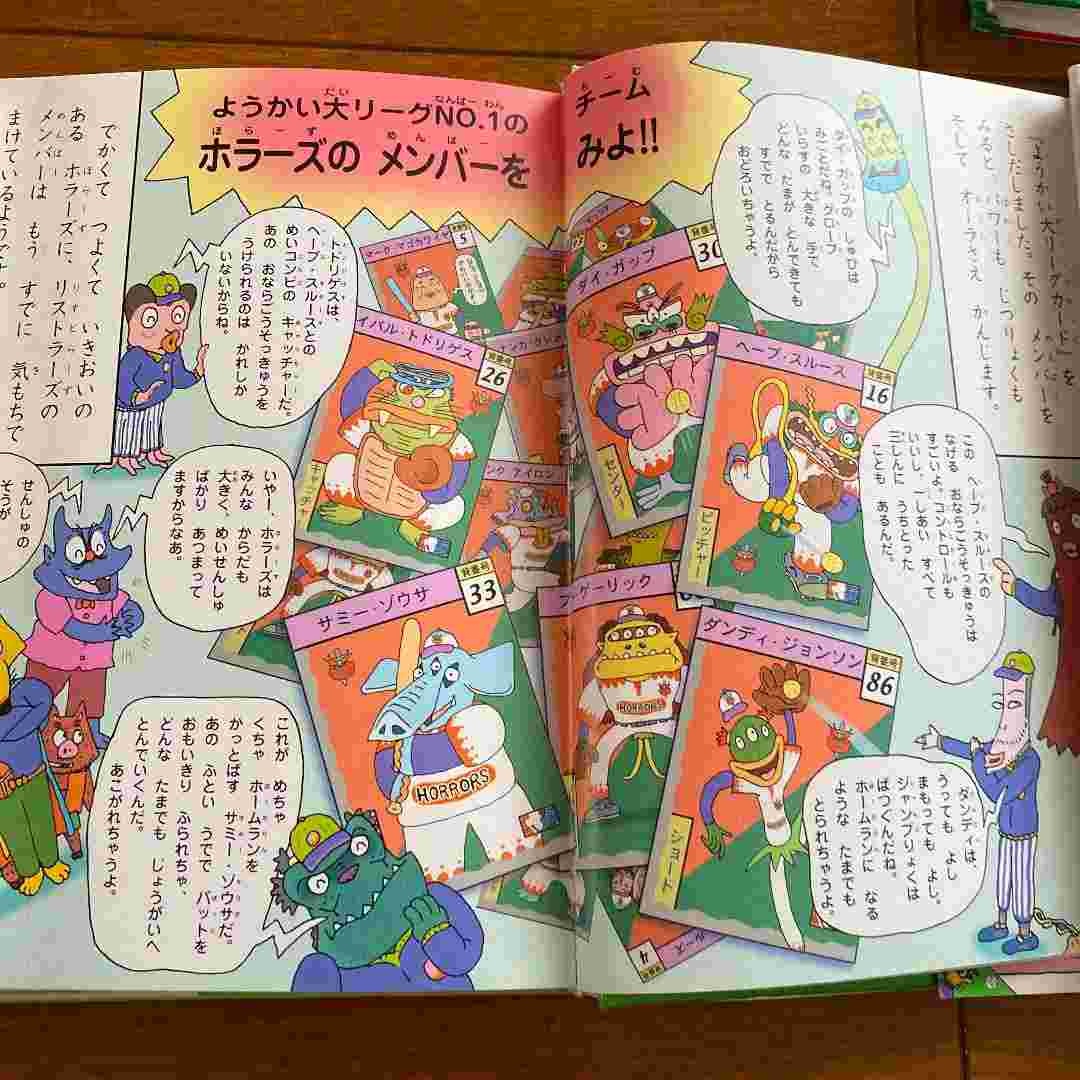 ようかい大リーグNO.1の チーム
ホラーズの メンバーを みよ!!
「ようかい大リーグカード」を
さしだしました。その メンバーを
みると、パワーも じつりょくも
そして オーラさえ かんじます。
でかくて つよくて いきおいの
ある ホラーズに、リストラーズの
メンバーは もう すでに 気もちで
まけているようです。
ダイ・ガップの しゅびは
みごとだね。グローブ
いらずの 大きな 手で
どんな たまが とんできても
すでで とるんだから
おどろいちゃうよ。
この ヘーブ・スルースの
なげる おならこうそっきゅうは
すごいよ。コントロールも
いいし、一しあい すべて
三しんに うちとった
ことも あるんだ。
ダンディは、
うっても よし
まもっても よし。
ジャンプりょくは
ばつぐんだね。
ホームランに なる
ような たまでも
とられちゃうよ。
トドリゲスは、
ヘーブ・スルースとの
めいコンビの キャッチャーだ。
あの おならこうそっきゅうを
うけられるのは かれしか
いないからね。
いやー、ホラーズは
みんな からだも
大きく、めいせんしゅ
ばかり あつまって
ますからなあ。
せんしゅの
そうが
これが めちゃ
くちゃ ホームランを
かっとばす サミー・ゾウサだ。
あの ふとい うでで バットを
おもいきり ふられちゃ、
どんな たまでも じょうがいへ
とんでいくんだ。
あこがれちゃうよ。
5
ダイ・ガップ
背番号
30
センター
イバル・トドリゲス
背番号
26
キャッチャー
ヘーブ・スルース
背番号
16
ピッチャー
アイロン
サミー・ゾウサ
背番号
33
HORRORS
ゲーリック
HORRORS
ダンディ・ジョンソン
背番号
86
ショート
ルース
背番号
4